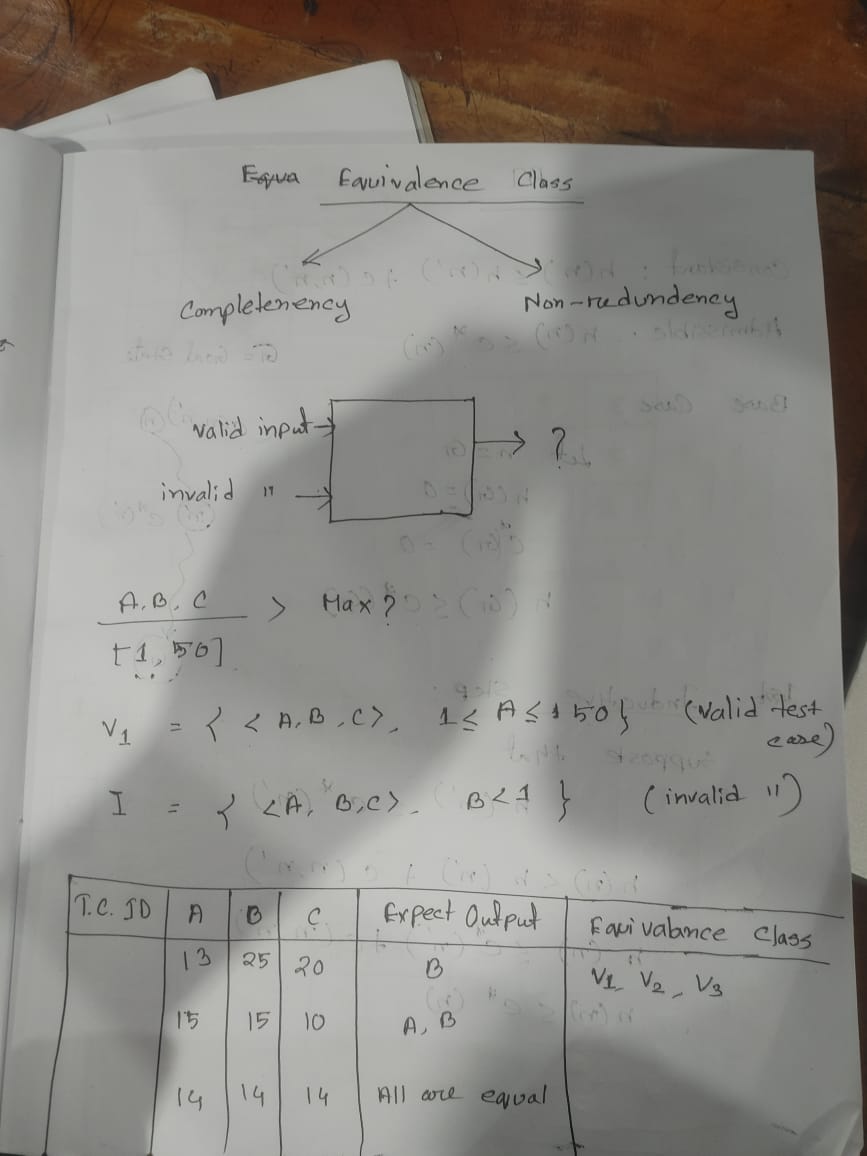 Equa Equivalence Class
Completenency Non-redundency
valid input
?
invalid "
A, B, C > Max ?
[1, 50]
V1 = { < A, B, C >, 1 ≤ A ≤ 50 } (valid test case)
I = { < A, B, C >. B < 1 } (invalid ")
T.C. ID A B C Expect Output Equivalance Class
13 25 20 B V1, V2, V3
15 15 10 A, B
14 14 14 All are equal